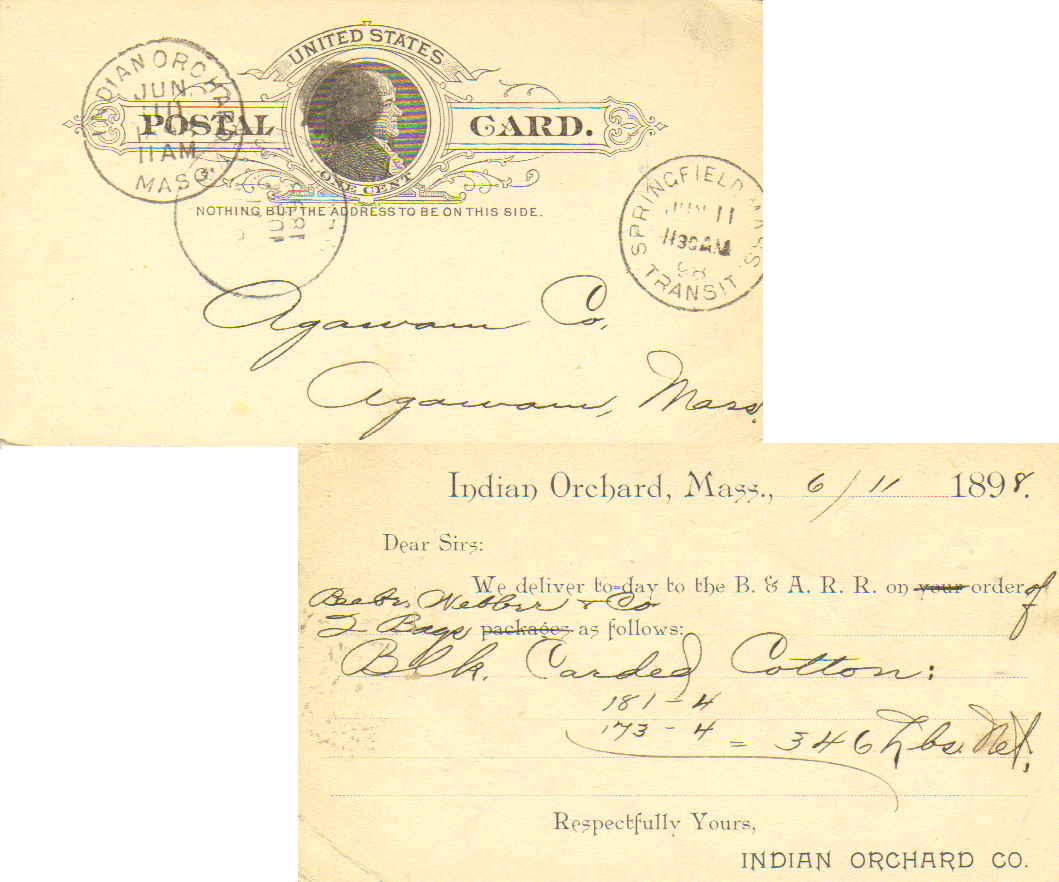 UNITED STATES
POSTAL CARD.
ONE CENT
NOTHING BUT THE ADDRESS TO BE ON THIS SIDE.
INDIAN ORCHARD
JUN
11 AM
MASS.
1898
SPRINGFIELD MASS
JUN 11
1130AM
98
TRANSIT
Agawam Co.
Agawam, Mass.
Indian Orchard, Mass., 6/11 1898.
Dear Sirs:
We deliver to-day to the B. & A. R. R. on your order of
Beebe, Webber & Co
2 Bags packages as follows:
Blk. Carded Cotton:
181 - 4
173 - 4 = 346 Lbs. Net.
Respectfully Yours,
INDIAN ORCHARD CO.